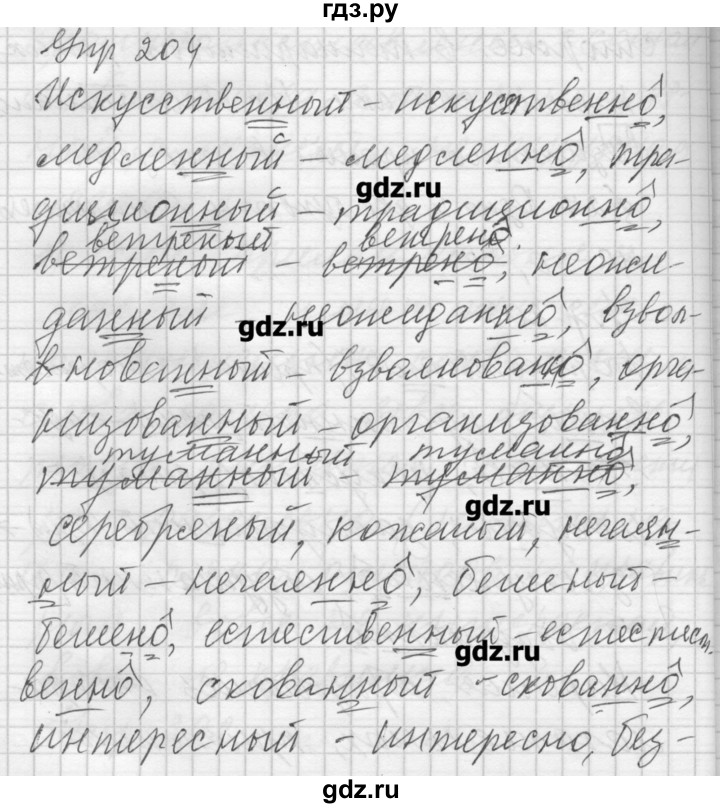 гдз.ру
Упр 204
Искусственный - искусственно,
медленный - медленно, тра-
gdz.ru
диционный - традиционно,
ветреный ветрено
ветреный - ветрено, неожи-
данный - неожиданно, взвол-
gdz.ru
нованный - взволнованно, орга-
низованный - организованно,
туманный туманно
туманный - туманно,
gdz.ru
серебряный, кожаный, нечаян-
ный - нечаянно, бешеный -
бешено, естественный - естест
gdz.ru
венно, скованный - скованно,
интересный - интересно, без-
gdz.ru